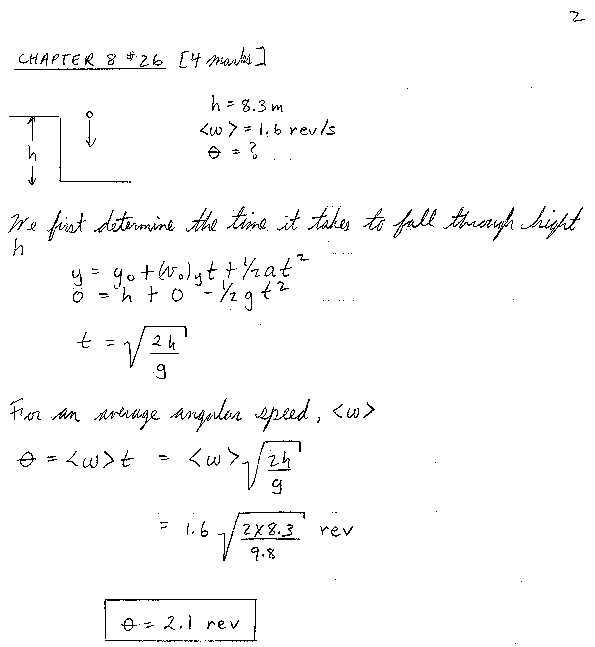 2
CHAPTER 8 #26 [4 marks]
h = 8.3 m
<ω> = 1.6 rev/s
θ = ?
h
We first determine the time it takes to fall through hight
h
y = y₀ + (v₀)yt + ½at²
0 = h + 0 - ½gt²
t = √(2h/g)
For an average angular speed, <ω>
θ = <ω>t = <ω>√(2h/g)
= 1.6 √(2×8.3/9.8) rev
θ = 2.1 rev